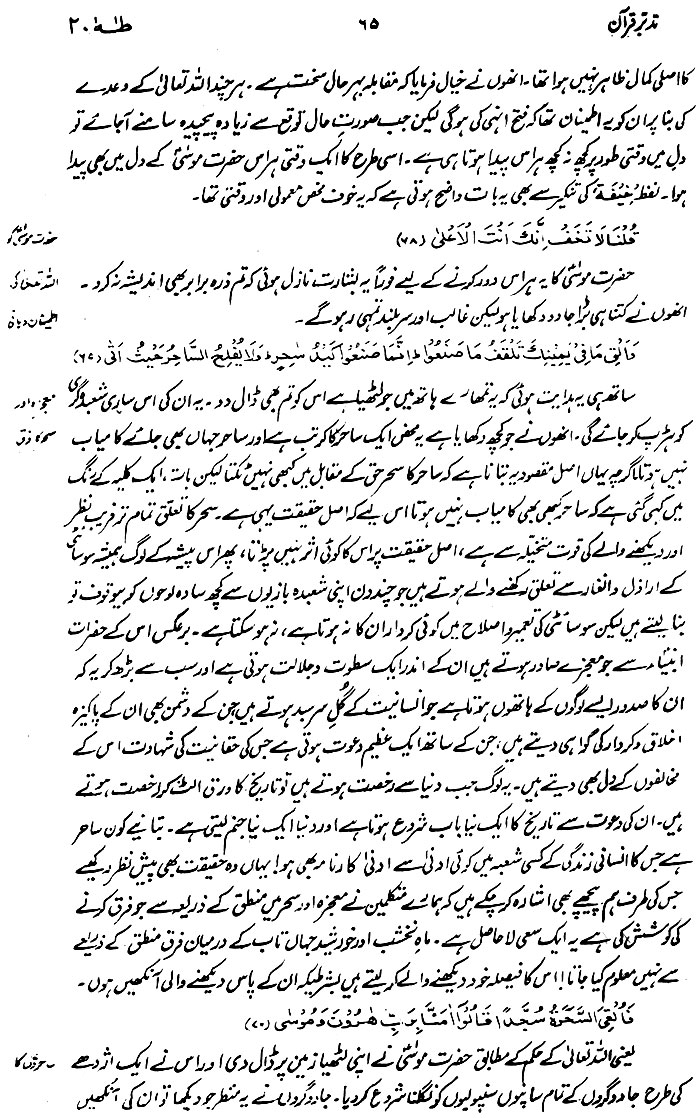 تدبر قرآن ۶۵ طٰہٰ ۲۰
کا اصلی کمال ظاہر نہیں ہوا تھا۔ انھوں نے خیال فرمایا کہ مقابلہ بہرحال سخت ہے۔ ہر چند اللہ تعالیٰ کے وعدے
کی بنا پر ان کو یہ اطمینان تھا کہ فتح انہی کی ہوگی لیکن جب صورتِ حال توقع سے زیادہ پیچیدہ سامنے آجائے تو
دل میں وقتی طور پر کچھ نہ کچھ ہراس پیدا ہوتا ہی ہے۔ اسی طرح کا ایک وقتی ہراس حضرت موسیٰؑ کے دل میں بھی پیدا
ہوا۔ لفظ 'خِيفَة' کی تنکیر سے بھی یہ بات واضح ہوتی ہے کہ یہ خوف محض معمولی اور وقتی تھا۔
قُلْنَا لَا تَخَفْ اِنَّكَ اَنْتَ الْاَعْلٰى (۶۸)
حضرت موسیٰؑ کو
حضرت موسیٰؑ کا یہ ہراس دور کرنے کے لیے فوراً یہ بشارت نازل ہوئی کہ تم ذرہ برابر بھی اندیشہ نہ کرو۔
اللہ تعالیٰ کی
انھوں نے کتنا ہی بڑا جادو دکھایا ہو لیکن غالب اور سربلند تمہی رہوگے۔
اطمینان دہانی
وَاَلْقِ مَا فِيْ يَمِيْنِكَ تَلْقَفْ مَا صَنَعُوْا ط اِنَّمَا صَنَعُوْا كَيْدُ سٰحِرٍ ط وَلَا يُفْلِحُ السَّاحِرُ حَيْثُ اَتٰى (۶۹)
ساتھ ہی یہ ہدایت ہوئی کہ یہ تمھارے ہاتھ میں جو لٹھیا ہے اس کو تم بھی ڈال دو۔ یہ ان کی اس ساری شعبدہ گری
معجزہ اور
کو ہڑپ کر جائے گی۔ انھوں نے جو کچھ دکھایا ہے یہ محض ایک ساحر کا کرتب ہے اور ساحر جہاں بھی جائے کامیاب
سحر کا فرق
نہیں ہوتا۔ اگرچہ یہاں اصل مقصود یہ بتانا ہے کہ ساحر کا سحر حق کے مقابل میں کبھی نہیں ٹکتا لیکن بات، ایک کلیہ کے رنگ
میں کہی گئی ہے کہ ساحر کبھی بھی کامیاب نہیں ہوتا اس لیے کہ اصل حقیقت یہی ہے۔ سحر کا تعلق تمام تر فریبِ نظر
اور دیکھنے والے کی قوت متخیلہ سے ہے، اصل حقیقت پر اس کا کوئی اثر نہیں پڑتا، پھر اس پیشہ کے لوگ ہمیشہ سوسائٹی
کے اراذل و انفار سے تعلق رکھنے والے ہوتے ہیں جو چند دن اپنی شعبدہ بازیوں سے کچھ سادہ لوحوں کو بیوقوف تو
بنا لیتے ہیں لیکن سوسائٹی کی تعمیر و اصلاح میں کوئی کردار ان کا نہ ہوتا ہے، نہ ہوسکتا ہے۔ برعکس اس کے حضرات
انبیاءؑ سے جو معجزے صادر ہوتے ہیں ان کے اندر ایک سطوت و جلالت ہوتی ہے اور سب سے بڑھ کر یہ کہ
ان کا صدور ایسے لوگوں کے ہاتھوں ہوتا ہے جو انسانیت کے گلِ سرسبد ہوتے ہیں جن کے دشمن بھی ان کے پاکیزہ
اخلاق و کردار کی گواہی دیتے ہیں، جن کے ساتھ ایک عظیم دعوت ہوتی ہے جس کی حقانیت کی شہادت اس کے
مخالفوں کے دل بھی دیتے ہیں۔ یہ لوگ جب دنیا سے رخصت ہوتے ہیں تو تاریخ کا ورق الٹ کر رخصت ہوتے
ہیں۔ ان کی دعوت سے تاریخ کا ایک نیا باب شروع ہوتا ہے اور دنیا ایک نیا جنم لیتی ہے۔ بتائیے کون ساحر
ہے جس کا انسانی زندگی کے کسی شعبہ میں کوئی ادنیٰ سے ادنیٰ کارنامہ بھی ہو! یہاں وہ حقیقت بھی پیش نظر رکھیے
جس کی طرف ہم پیچھے بھی اشارہ کرچکے ہیں کہ ہمارے متکلمین نے معجزہ اور سحر میں منطق کے ذریعہ سے جو فرق کرنے
کی کوشش کی ہے یہ ایک سعی لاحاصل ہے۔ ماہِ نخشب اور خورشید جہاں تاب کے درمیان فرق منطق کے ذریعے
سے نہیں معلوم کیا جاتا! اس کا فیصلہ خود دیکھنے والے کرلیتے ہیں بشرطیکہ ان کے پاس دیکھنے والی آنکھیں ہوں۔
فَاُلْقِيَ السَّحَرَةُ سُجَّدًا قَالُوْٓا اٰمَنَّا بِرَبِّ هٰرُوْنَ وَمُوْسٰى (۷۰)
یعنی اللہ تعالیٰ کے حکم کے مطابق حضرت موسیٰؑ نے اپنی لٹھیا زمین پر ڈال دی اور اس نے ایک اژدھے
کی طرح جادوگروں کے تمام سانپوں سنپولیوں کو نگلنا شروع کردیا۔ جادوگروں نے یہ منظر جو دیکھا تو ان کی آنکھیں